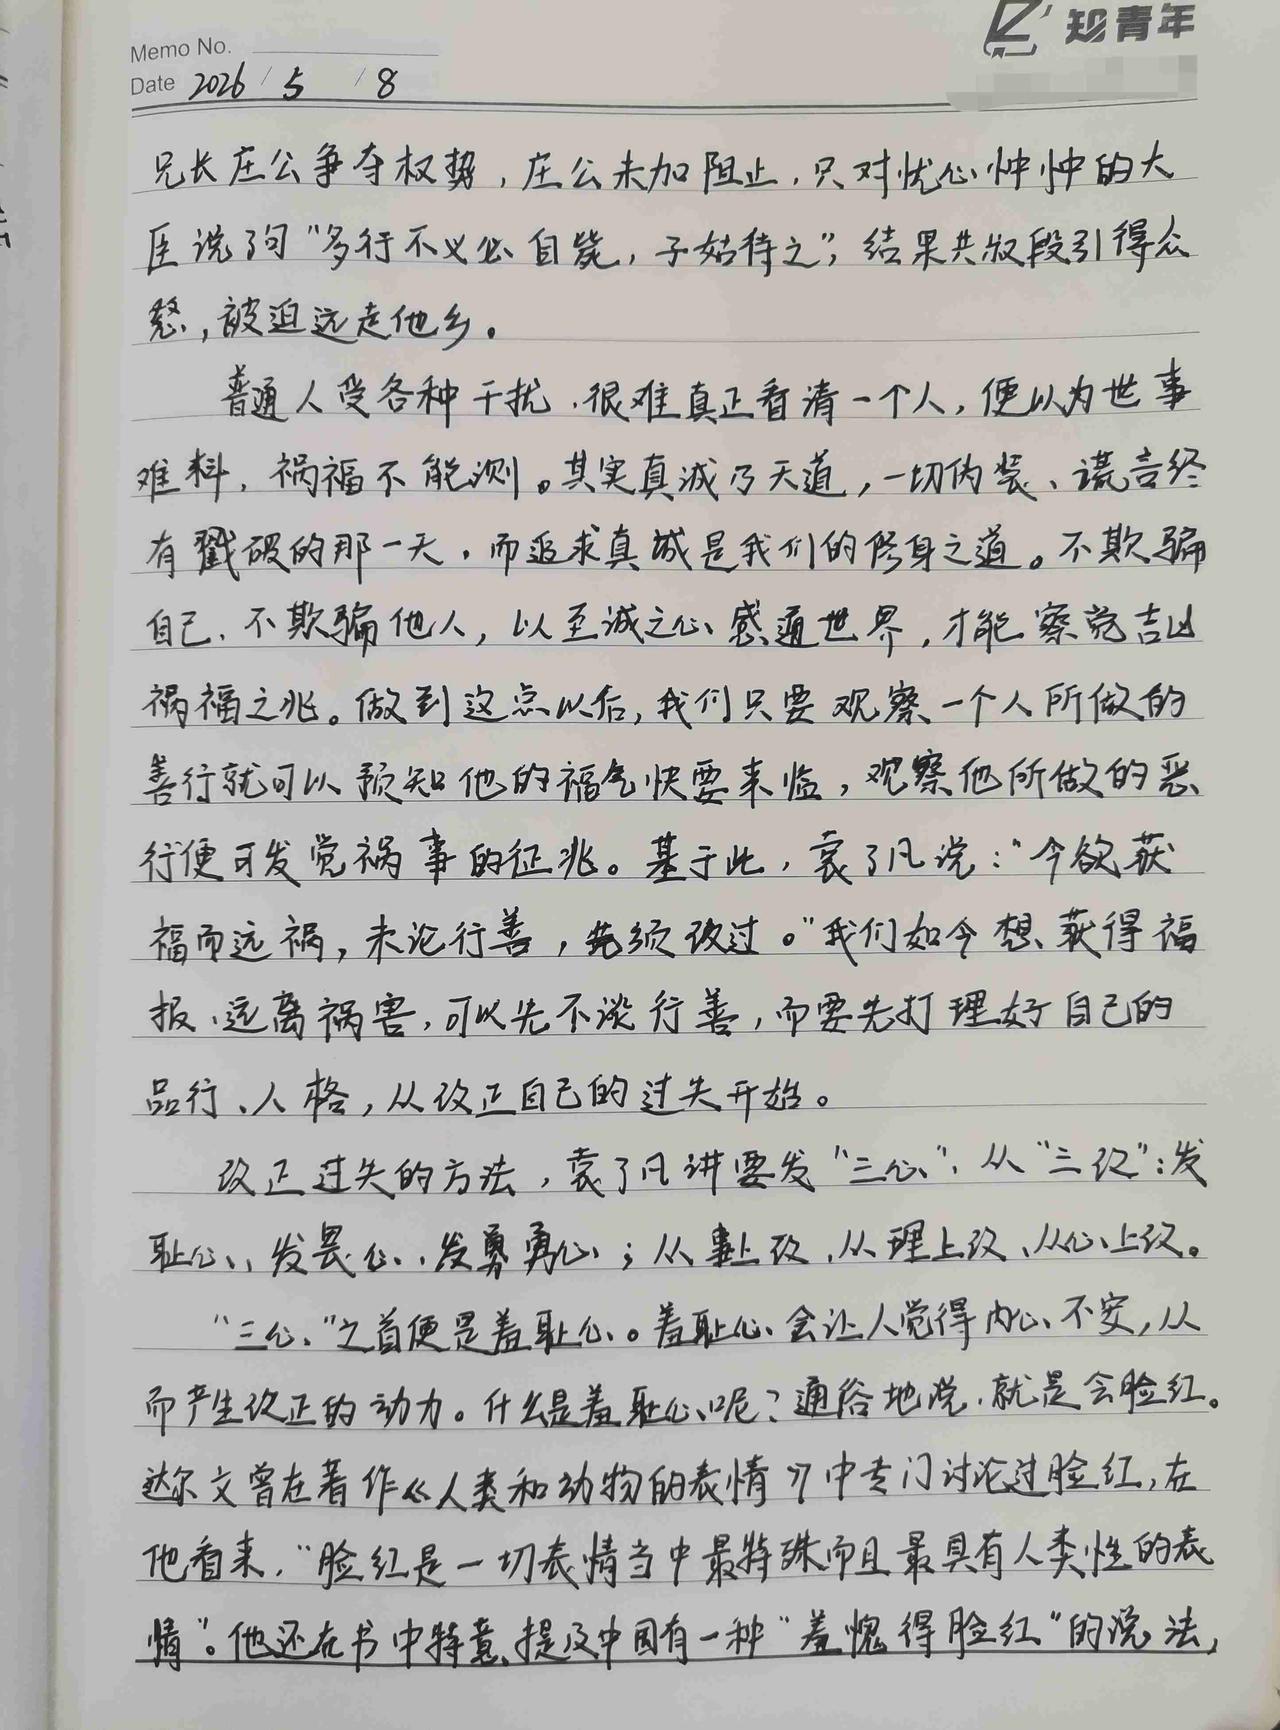 知青年
Memo No.
Date 2026 / 5 / 8
兄长庄公争夺权势，庄公未加阻止，只对忧心忡忡的大
臣说了句“多行不义必自毙，子姑待之”，结果共叔段引得众
怒，被迫远走他乡。
普通人受各种干扰，很难真正看清一个人，便以为世事
难料，祸福不能测。其实真诚乃天道，一切伪装、谎言终
有戳破的那一天，而追求真诚是我们的修身之道。不欺骗
自己、不欺骗他人，以至诚之心感通世界，才能察觉吉凶
祸福之兆。做到这点以后，我们只要观察一个人所做的
善行就可以预知他的福气快要来临，观察他所做的恶
行便可发觉祸事的征兆。基于此，袁了凡说：“今欲获
福而远祸，未论行善，先须改过。”我们如今想获得福
报、远离祸害，可以先不谈行善，而要先打理好自己的
品行、人格，从改正自己的过失开始。
改正过失的方法，袁了凡讲要发“三心”、从“三改”：发
耻心、发畏心、发勇心；从事上改、从理上改、从心上改。
“三心”之首便是羞耻心。羞耻心会让人觉得内心不安，从
而产生改正的动力。什么是羞耻心呢？通俗地说，就是会脸红。
达尔文曾在著作《人类和动物的表情》中专门讨论过脸红，在
他看来，“脸红是一切表情当中最特殊而且最具有人类性的表
情”。他还在书中特意提及中国有一种“羞愧得脸红”的说法，